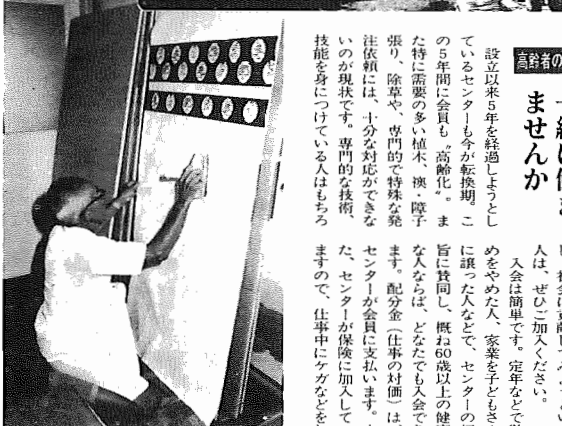 高齢者の
ませんか
設立以来5年を経過しようとし
ているセンターも今が転換期。こ
の5年間に会員も〝高齢化〟。ま
た特に需要の多い植木、襖・障子
張り、除草や、専門的で特殊な発
注依頼には、十分な対応ができな
いのが現状です。専門的な技術、
技能を身につけている人はもちろ
人は、ぜひご加入ください。
入会は簡単です。定年などで
めをやめた人、家業を子どもさ
に譲った人などで、センターの
旨に賛同し、概ね60歳以上の健
な人ならば、どなたでも入会でき
ます。配分金(仕事の対価)は
センターが会員に支払います。
た、センターが保険に加入して
ますので、仕事中にケガなどを